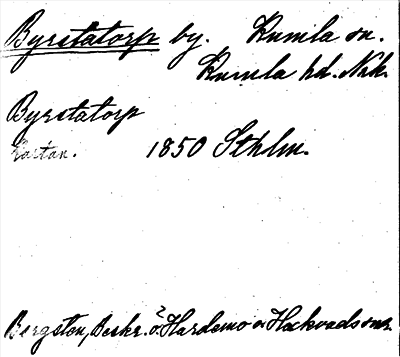 Byrstatorp by. Kumla sn.
Kumla hd. Nrk.
Byrstatorp
Kartan. 1850 Sthlm.
Bergsten, Beskr. ö. Hardemo o. Hackvads snr.